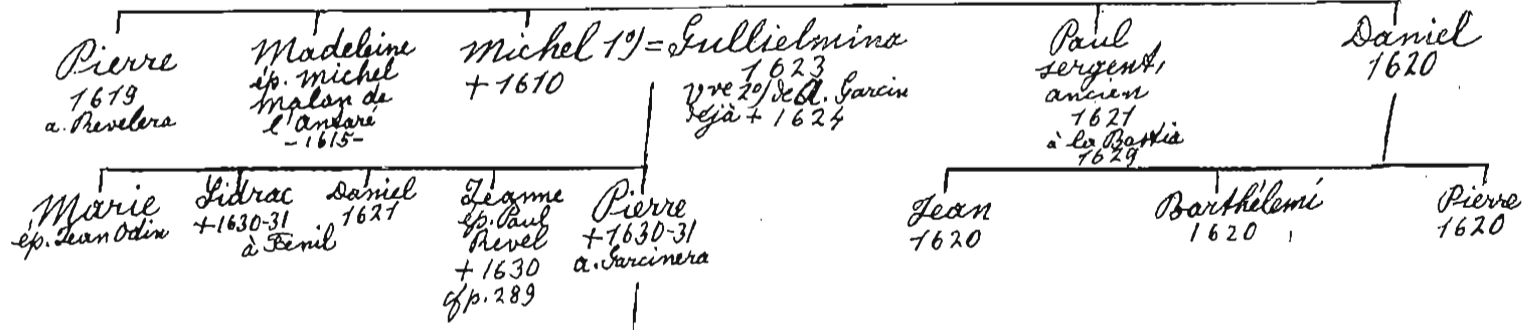 Pierre
1619
a. Revelera
Madeleine
ép. Michel
Malan de
l'Antaré
-1615-
Michel 1º) = Gullielmina
+ 1610
1623
vve 2º) de A. Garcin
déjà + 1624
Paul
sergent,
ancien
1621
à la Bastia
1629
Daniel
1620
Marie
ép. Jean Odin
Sidrac
+1630-31
à Fenil
Daniel
1621
Jeanne
ép. Paul
Revel
+ 1630
cf p. 289
Pierre
+ 1630-31
a. Garcinera
Jean
1620
Barthélemi
1620
Pierre
1620